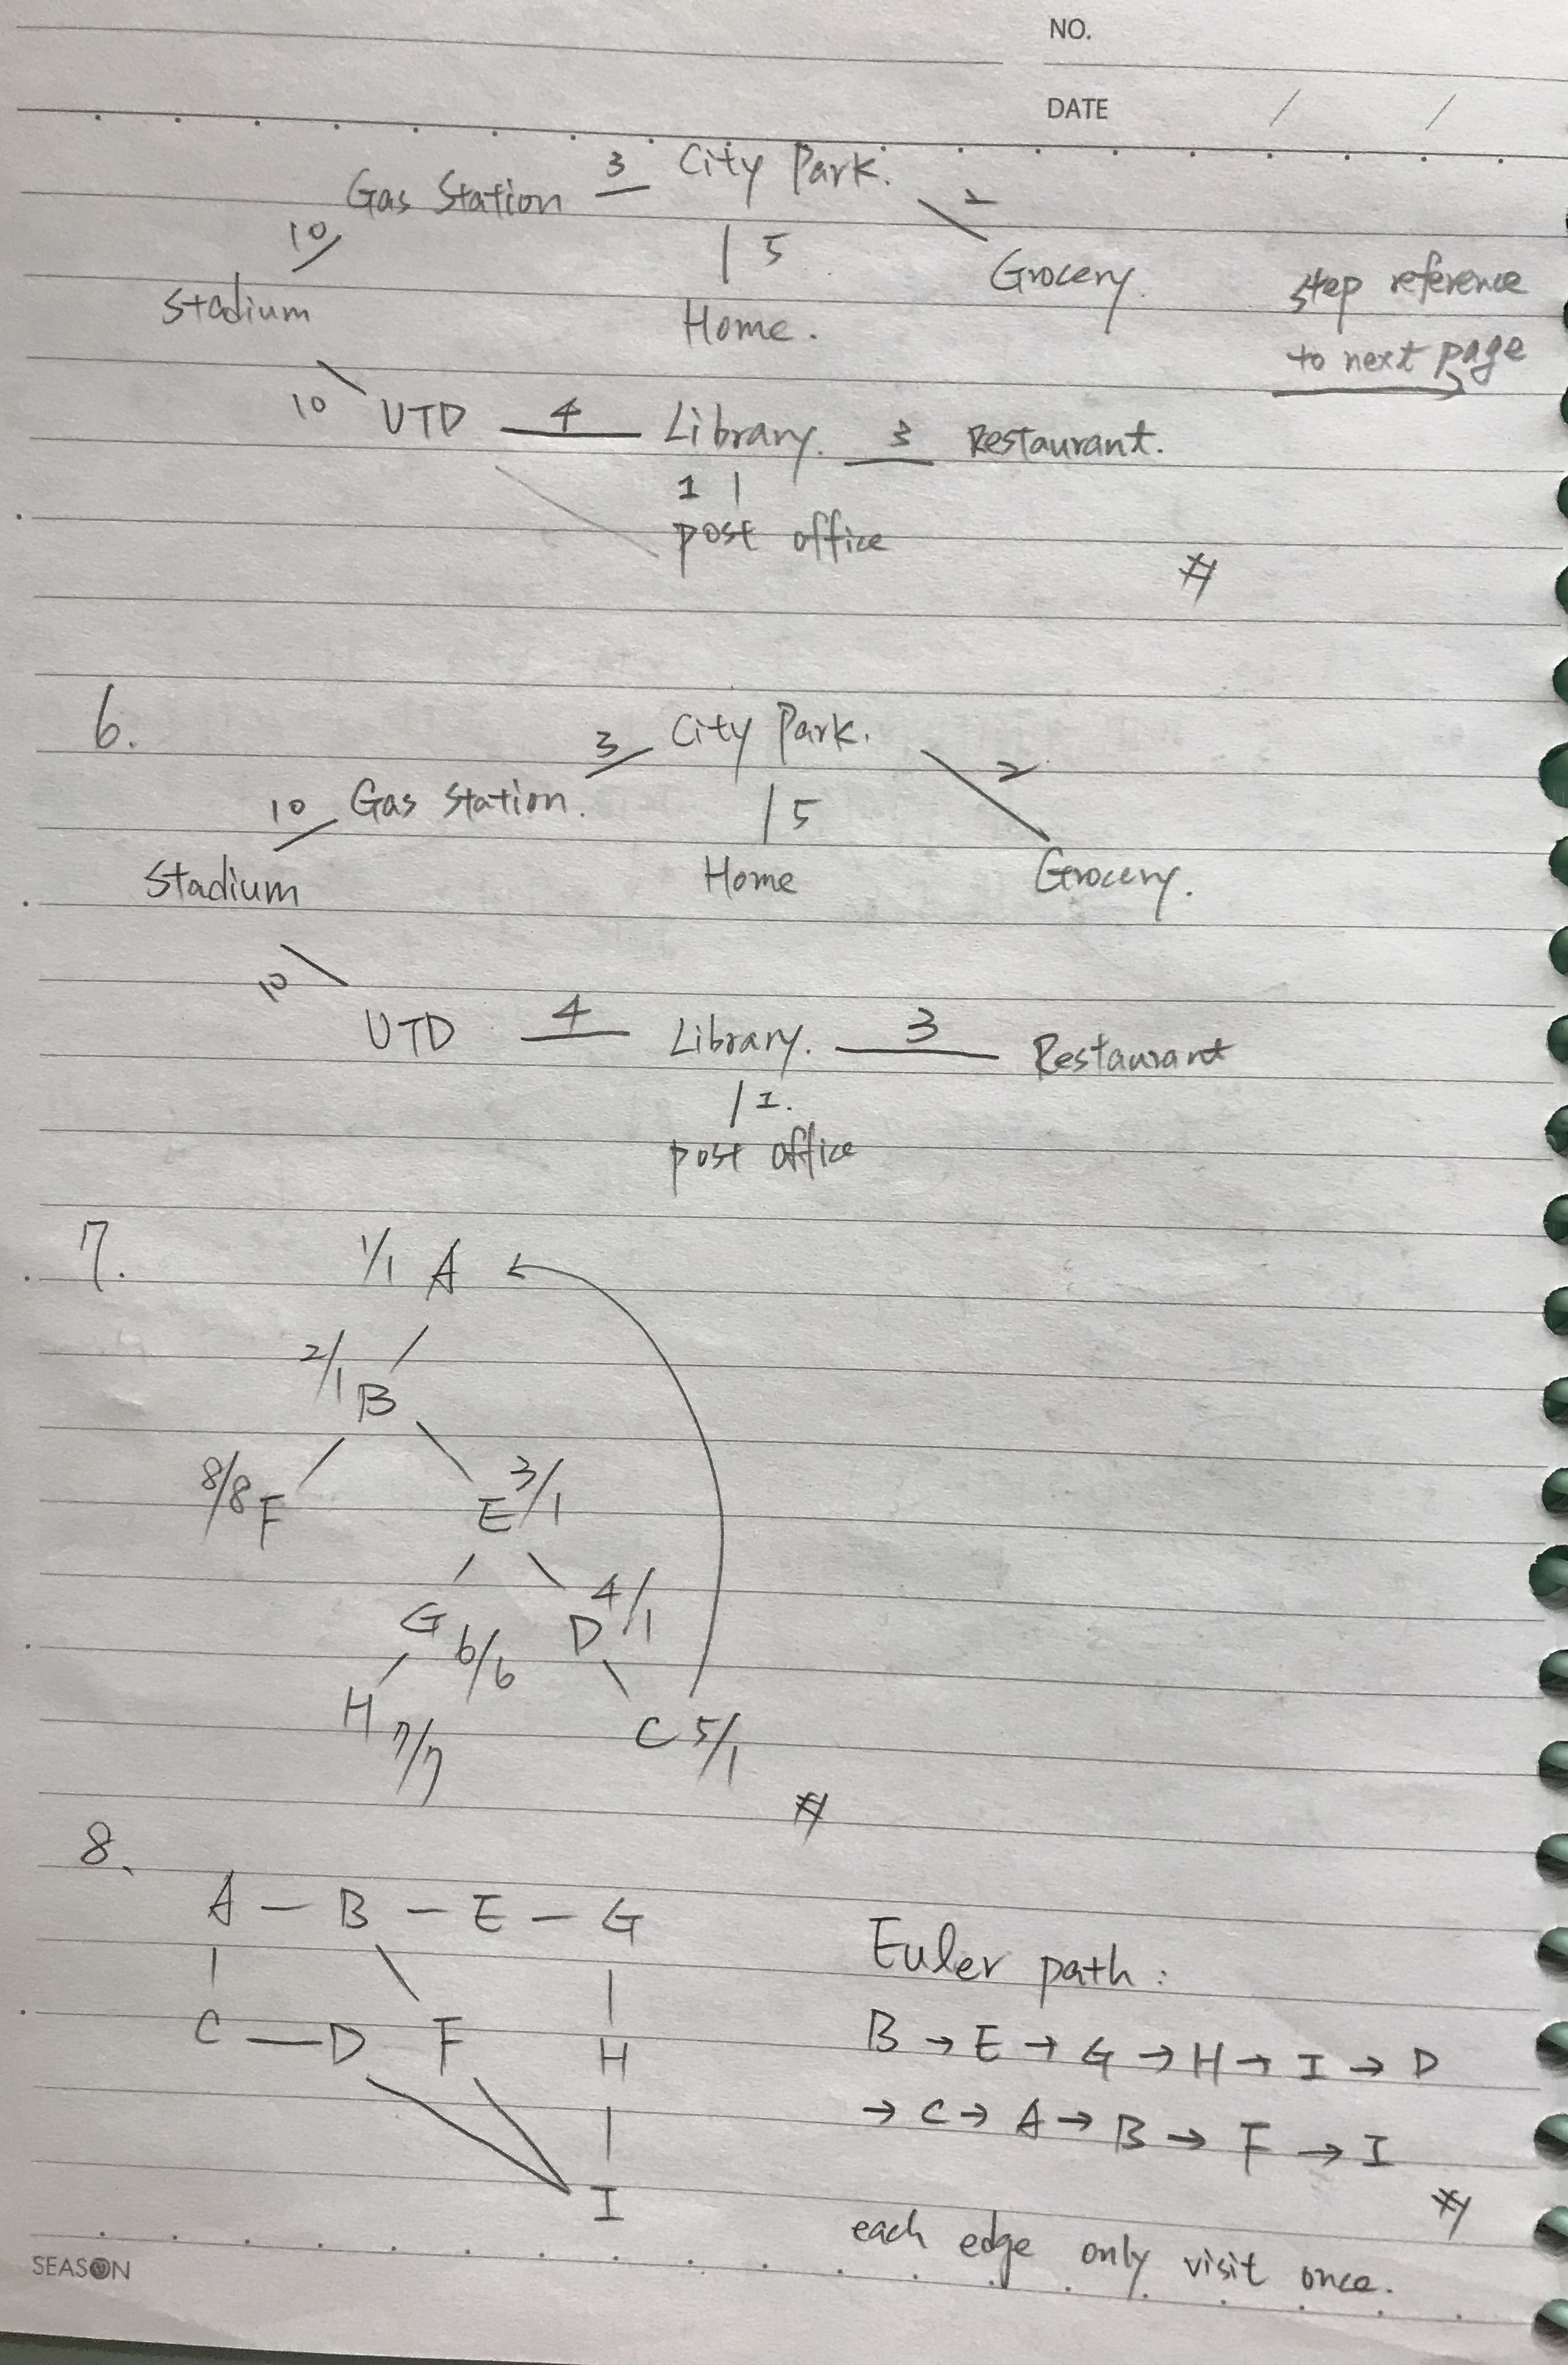 NO.
DATE / /
Gas Station 3 City Park. 2
10 5 Grocery. step reference
Stadium Home. to next page
10 UTD 4 Library. 3 Restaurant.
1
post office
6.
3 City Park. 2
10 Gas Station. 5
Stadium Home Grocery.
10
UTD 4 Library. 3 Restaurant
1.
post office
7.
1/1 A
2/1 B
8/8 F E 3/1
G 6/6 D 4/1
H 7/7 C 5/1
8.
A — B — E — G
C — D F H
I
Euler path:
B → E → G → H → I → D
→ C → A → B → F → I
each edge only visit once.
SEASON